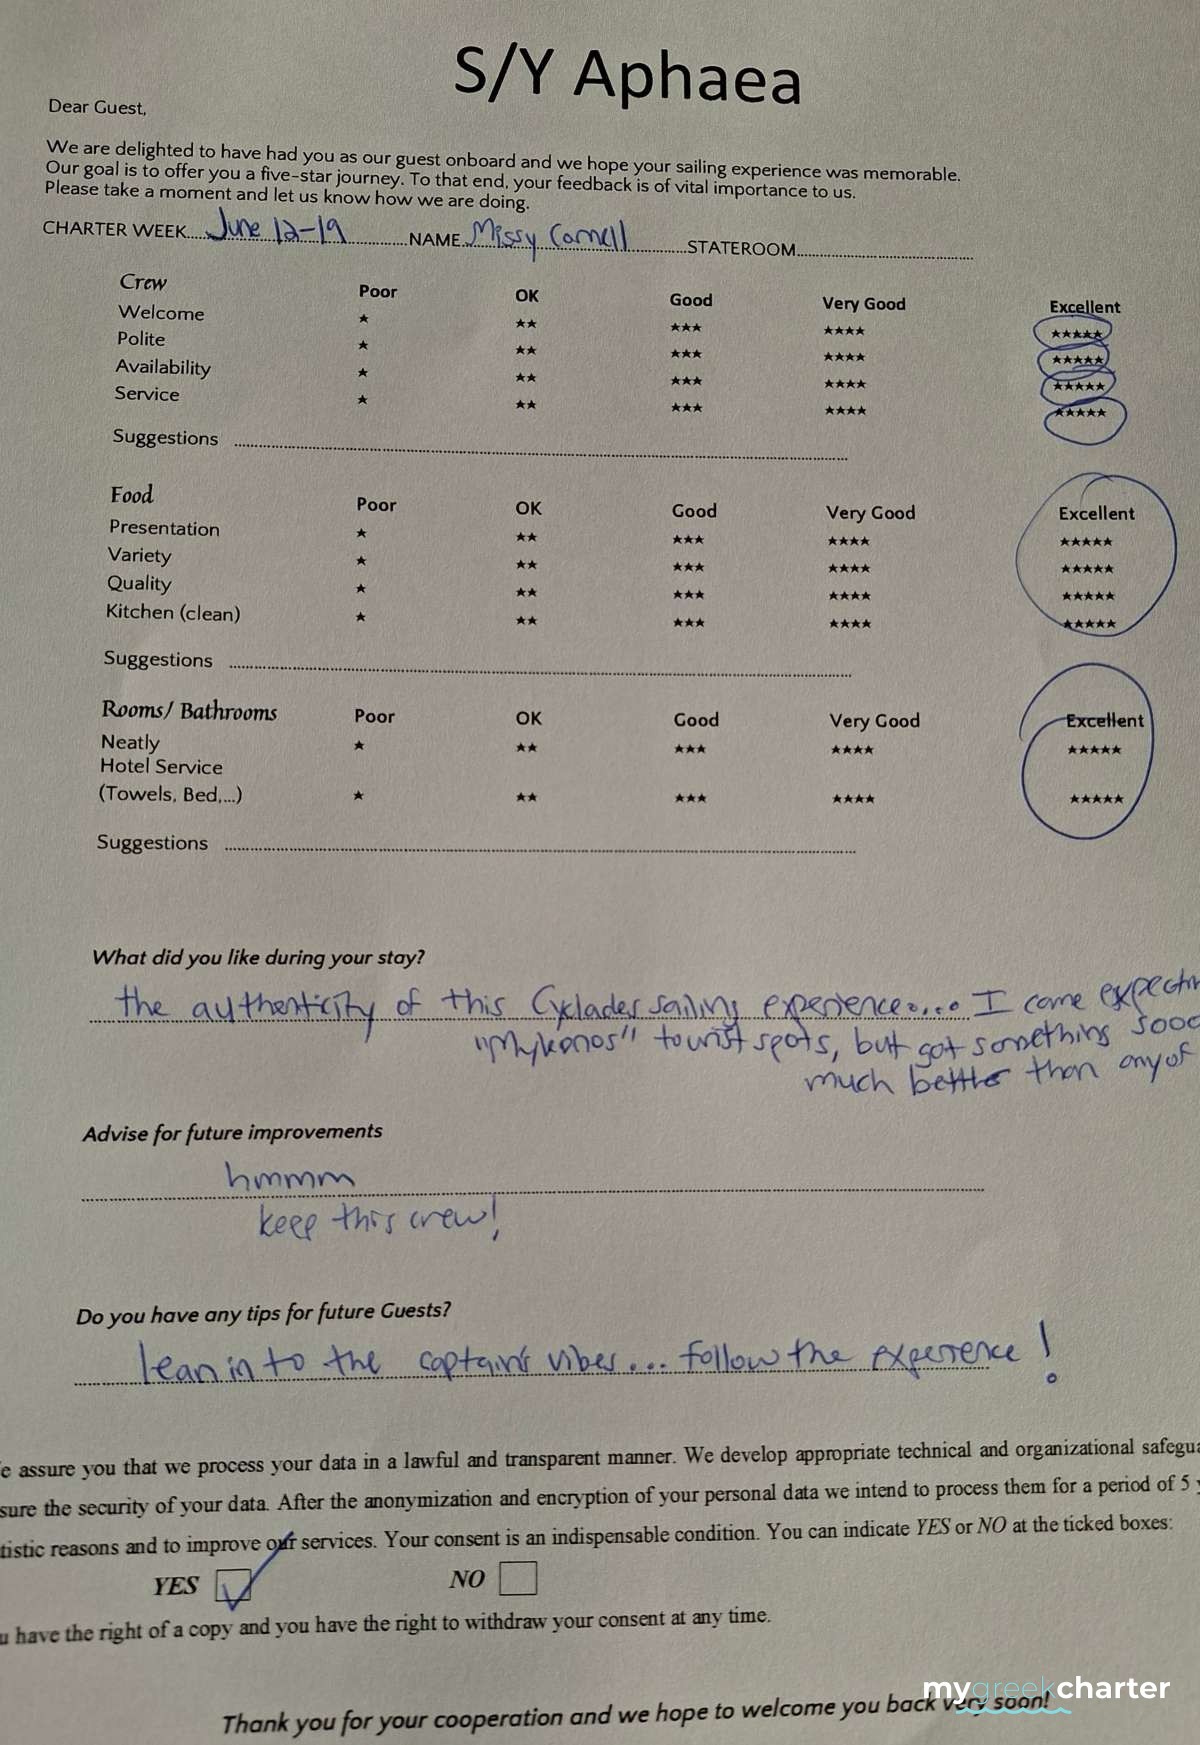 S/Y Aphaea
Dear Guest,
We are delighted to have had you as our guest onboard and we hope your sailing experience was memorable.
Our goal is to offer you a five-star journey. To that end, your feedback is of vital importance to us.
Please take a moment and let us know how we are doing.
CHARTER WEEK June 12-19 NAME Missy Cornell STATEROOM
Crew Poor OK Good Very Good Excellent
Welcome ★ ★★ ★★★ ★★★★ ★★★★★
Polite ★ ★★ ★★★ ★★★★ ★★★★★
Availability ★ ★★ ★★★ ★★★★ ★★★★★
Service ★ ★★ ★★★ ★★★★ ★★★★★
Suggestions
Food Poor OK Good Very Good Excellent
Presentation ★ ★★ ★★★ ★★★★ ★★★★★
Variety ★ ★★ ★★★ ★★★★ ★★★★★
Quality ★ ★★ ★★★ ★★★★ ★★★★★
Kitchen (clean) ★ ★★ ★★★ ★★★★ ★★★★★
Suggestions
Rooms/ Bathrooms Poor OK Good Very Good Excellent
Neatly ★ ★★ ★★★ ★★★★ ★★★★★
Hotel Service
(Towels, Bed,...) ★ ★★ ★★★ ★★★★ ★★★★★
Suggestions
What did you like during your stay?
the authenticity of this Cyclades sailing experience.... I came expectin
"Mykonos" tourist spots, but got something sooo
much better than any of
Advise for future improvements
hmmm
keep this crew!
Do you have any tips for future Guests?
lean in to the captain's vibes... follow the experience!
e assure you that we process your data in a lawful and transparent manner. We develop appropriate technical and organizational safegua
sure the security of your data. After the anonymization and encryption of your personal data we intend to process them for a period of 5 y
tistic reasons and to improve our services. Your consent is an indispensable condition. You can indicate YES or NO at the ticked boxes:
YES NO
u have the right of a copy and you have the right to withdraw your consent at any time.
mygreekcharter
Thank you for your cooperation and we hope to welcome you back very soon!